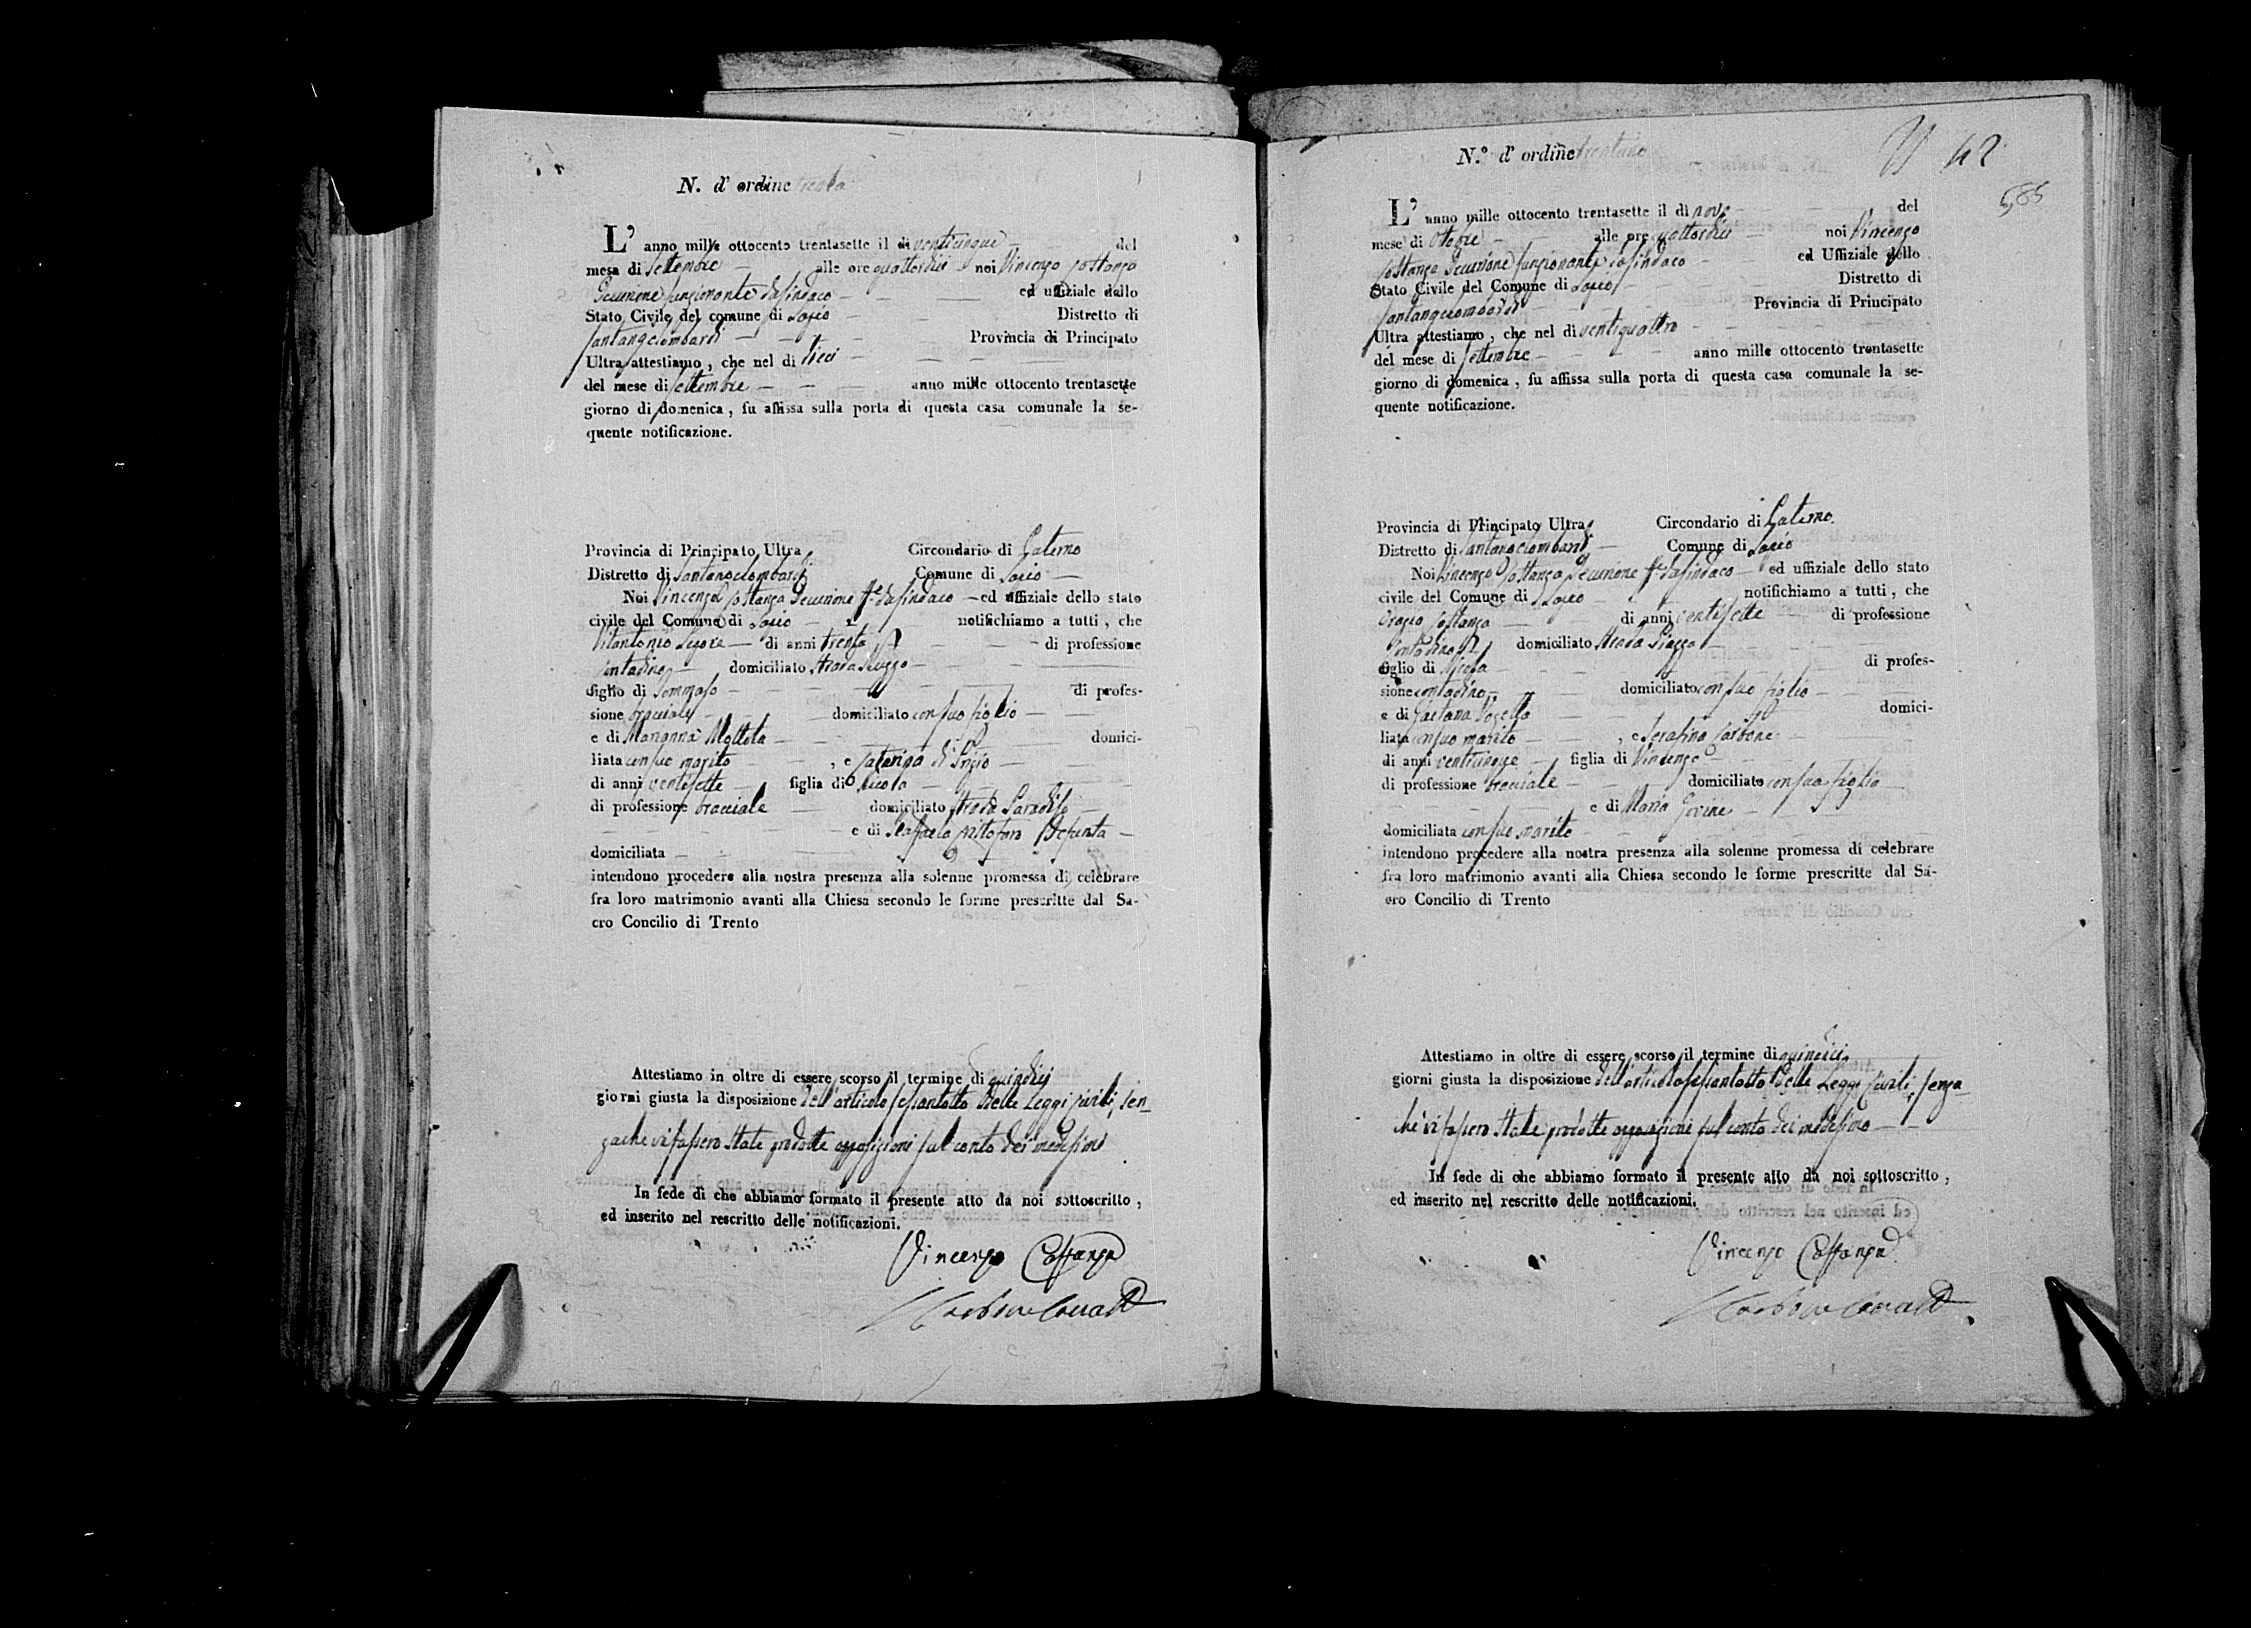 N. d' ordine trenta
L' anno mille ottocento trentasette il dì venticinque del
mese di Settembre alle ore quattordici noi Vincenzo Costanza
Decurione funzionante da Sindaco ed uffiziale dello
Stato Civile del comune di Lacio Distretto di
Santangelombardi Provincia di Principato
Ultra attestiamo, che nel dì dieci
del mese di Settembre anno mille ottocento trentasette
giorno di domenica, fu affissa sulla porta di questa casa comunale la se-
guente notificazione.
Provincia di Principato Ultra Circondario di Paterno
Distretto di Santangelombardi Comune di
Noi Vincenzo Costanza Decurione ff.e da Sindaco ed uffiziale dello stato
civile del Comune di notifichiamo a tutti, che
Vitantonio di anni trenta di professione
Contadino domiciliato Strada
figlio di Tommaso di profes-
sione bracciale domiciliato con suo figlio
e di Marianna Mottola domici-
liata con suo marito, e Caterina di
di anni ventisette figlia di Nicola
di professione bracciale domiciliato Strada Paradiso
e di Rafaela Defunta
domiciliata
intendono procedere alla nostra presenza alla solenne promessa di celebrare
fra loro matrimonio avanti alla Chiesa secondo le forme prescritte dal Sa-
cro Concilio di Trento
Attestiamo in oltre di essere scorso il termine di quindici
giorni giusta la disposizione dell'articolo sessantotto delle Leggi Civili, sen-
zache vi fossero state prodotte opposizioni sul conto dei medesimi
In fede di che abbiamo formato il presente atto da noi sottoscritto,
ed inserito nel rescritto delle notificazioni.
Vincenzo Costanza
N.° d' ordine trentuno
42
585
L' anno mille ottocento trentasette il dì nove del
mese di Ottobre alle ore quattordici noi Vincenzo
Costanza Decurione funzionante da Sindaco ed Uffiziale dello
Stato Civile del Comune di Distretto di
Santangelombardi Provincia di Principato
Ultra attestiamo, che nel dì ventiquattro
del mese di Settembre anno mille ottocento trentasette
giorno di domenica, fu affissa sulla porta di questa casa comunale la se-
guente notificazione.
Provincia di Principato Ultra Circondario di Paterno.
Distretto di Santangelombardi Comune di
Noi Vincenzo Costanza Decurione ff.e da Sindaco ed uffiziale dello stato
civile del Comune di notifichiamo a tutti, che
Orazio Costanza di anni ventisette di professione
Contadino domiciliato Strada Piazza
figlio di Nicola di profes-
sione contadino domiciliato con suo figlio
e di Gaetana domici-
liata con suo marito, e Serafina Carbone
di anni venticinque figlia di Vincenzo
di professione bracciale domiciliato con sua figlia
e di Maria Iovine
domiciliata con suo marito
intendono procedere alla nostra presenza alla solenne promessa di celebrare
fra loro matrimonio avanti alla Chiesa secondo le forme prescritte dal Sa-
cro Concilio di Trento
Attestiamo in oltre di essere scorso il termine di quindici
giorni giusta la disposizione dell'articolo sessantotto delle Leggi Civili, senza
che vi fossero state prodotte opposizioni sul conto dei medesimo
In fede di che abbiamo formato il presente atto da noi sottoscritto,
ed inserito nel rescritto delle notificazioni.
Vincenzo Costanza